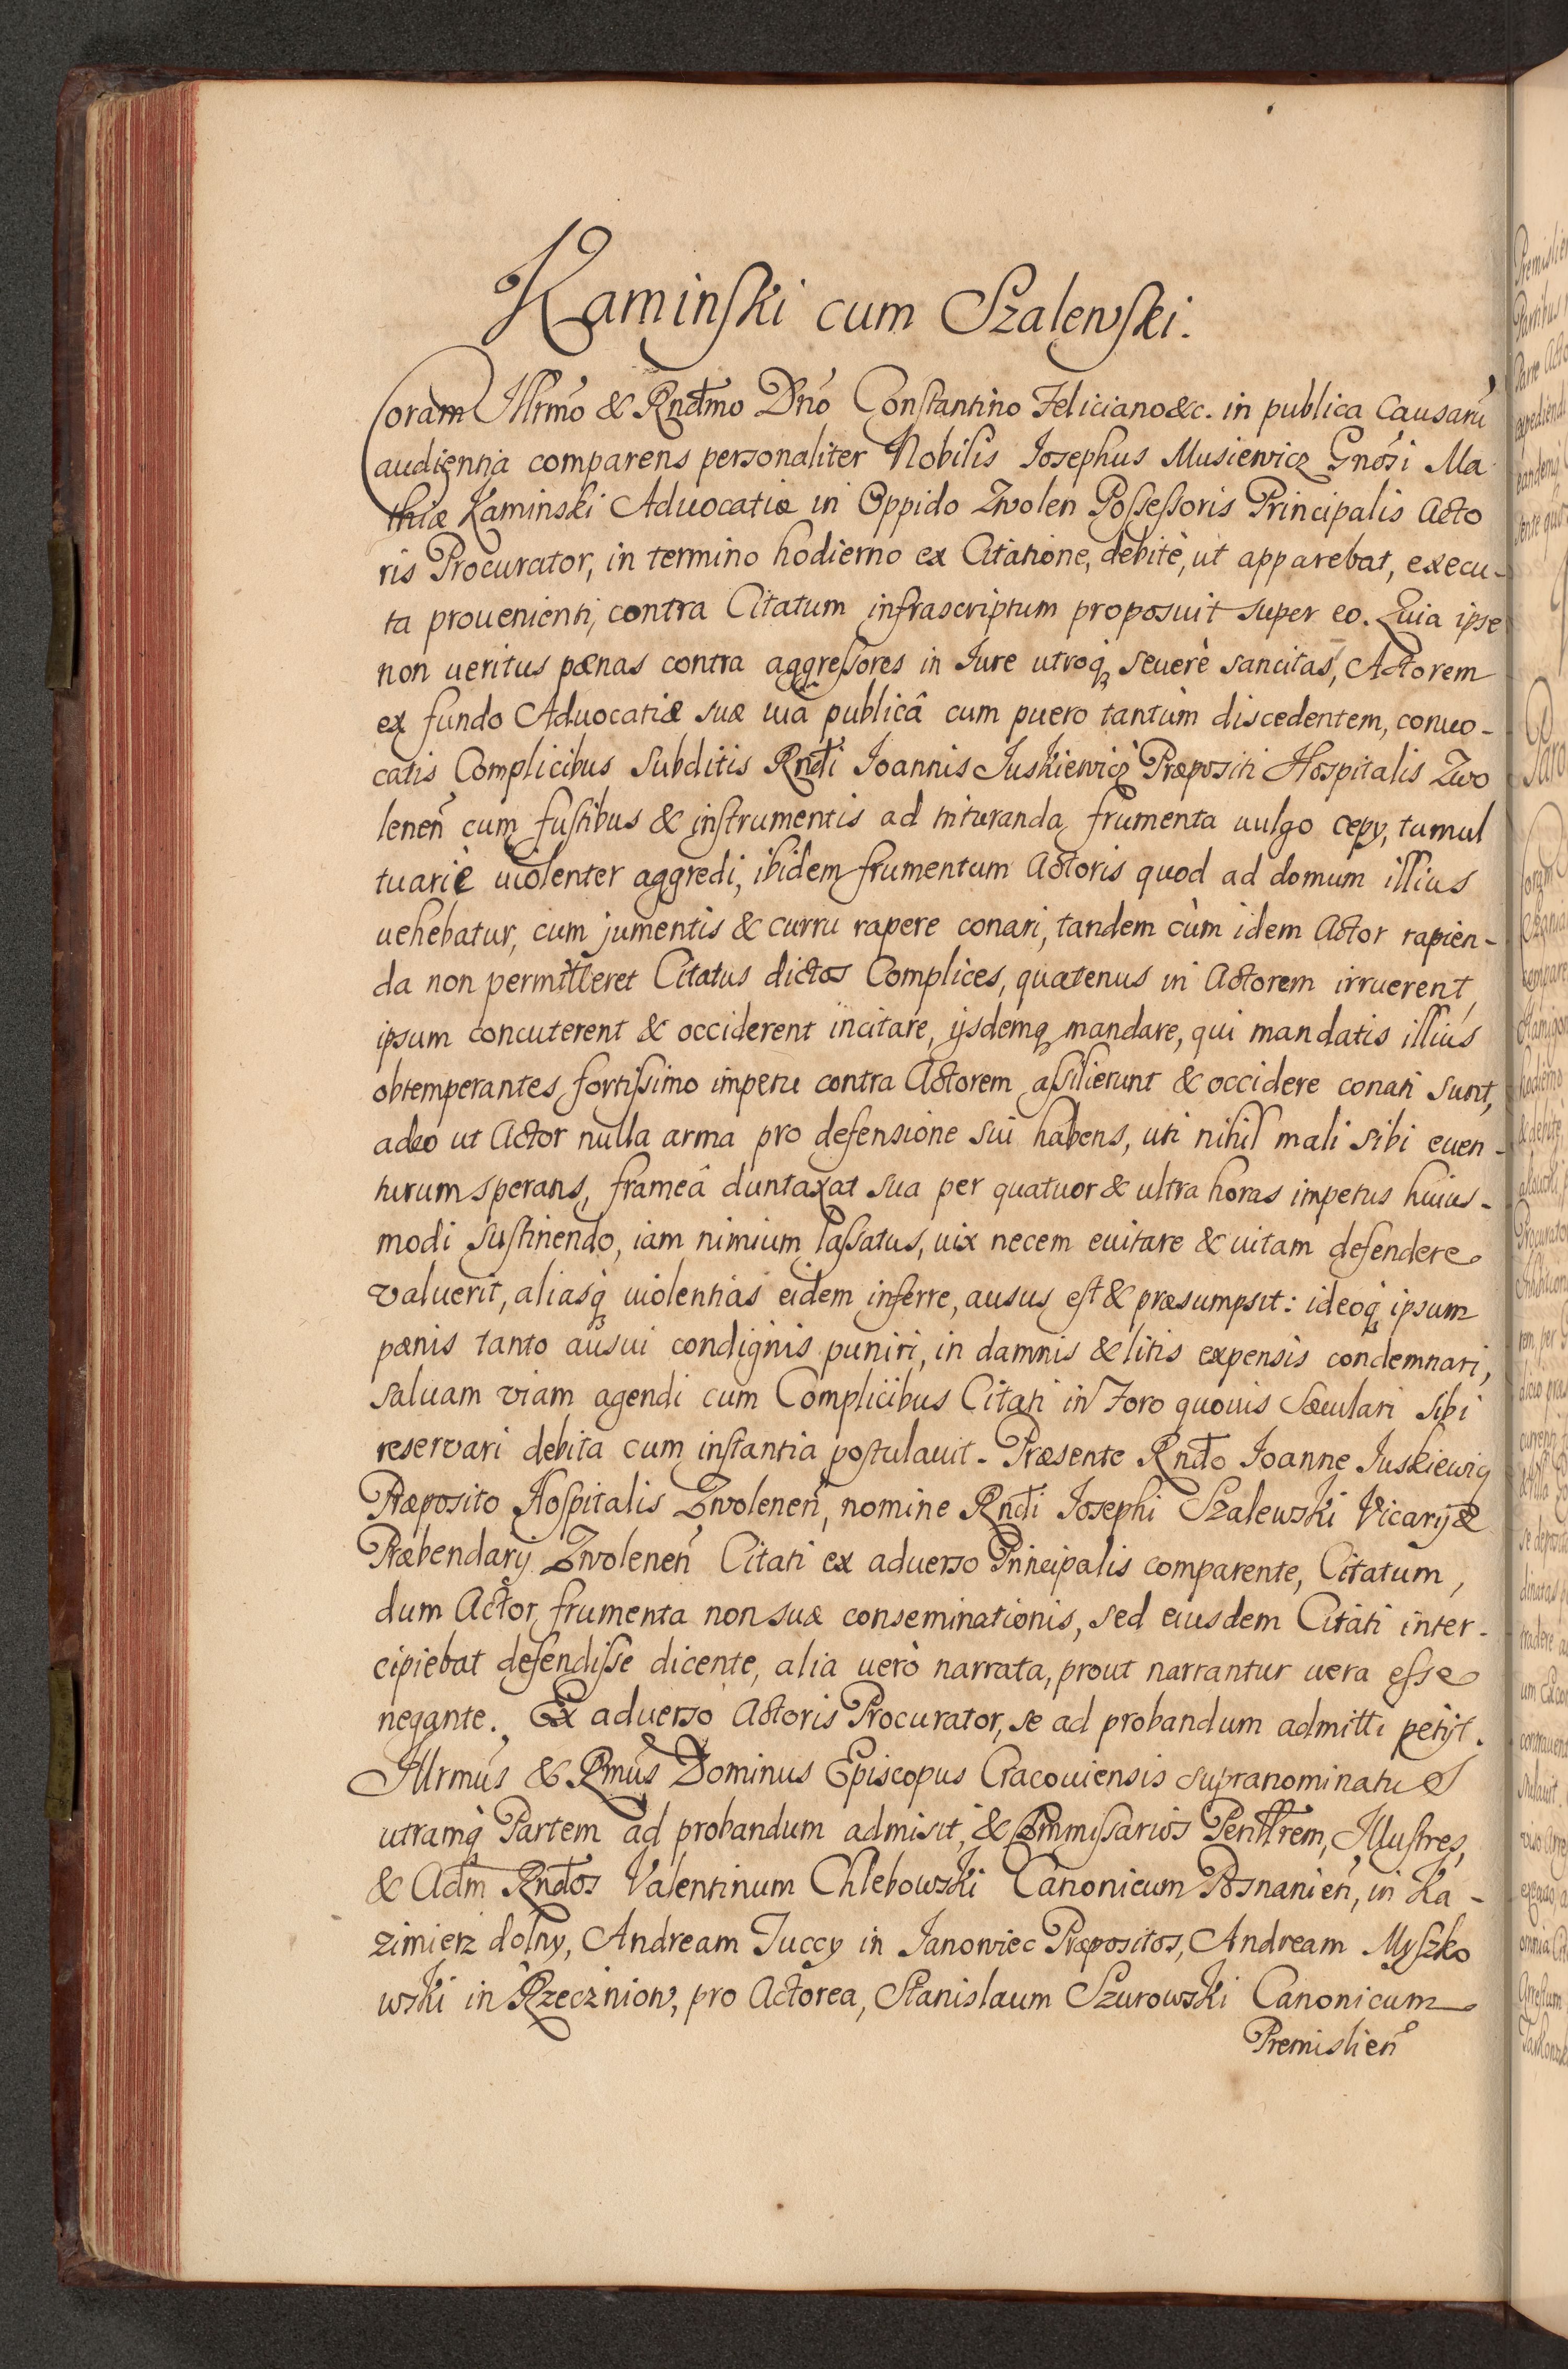 Kaminski cum Szalewski.
Coram Illrmo & Rndmo Dno Constantino Feliciano &c. in publica Causarū
audientia comparens personaliter Nobilis Josephus Musiewicz Gnosi Ma
thiæ Kaminski Aduocatiæ in Oppido Zwolen Possessoris Principalis Acto
ris Procurator, in termino hodierno ex Citatione, debitè, ut apparebat, execu-
ta prouenienti, contra Citatum infrascriptum proposuit super eo. Quia ipse
non ueritus pœnas contra aggressores in Iure utroq; seuerè sancitas, Actorem
ex fundo Aduocatiæ suæ uiâ publicâ cum puero tantùm discedentem, conuo-
catis Complicibus Subditis Rndi Ioannis Iuskiewicz Præpositi Hospitalis Zwo
lenen̄ cum fustibus & instrumentis ad trituranda frumenta uulgo cepy, tumul
tuariè uiolenter aggredi, ibidem frumentum Actoris quod ad domum illius
uehebatur, cum jumentis & curru rapere conari, tandem cùm idem Actor rapien-
da non permitteret Citatus dictos Complices, quatenus in Actorem irruerent,
ipsum concuterent & occiderent incitare, ijsdemq; mandare, qui mandatis illius
obtemperantes fortissimo impetu contra Actorem assilierunt & occidere conati sunt,
adeo ut Actor nulla arma pro defensione sui habens, uti nihil mali sibi euen-
turum sperans, frameâ duntaxat sua per quatuor & ultra horas impetus huius-
modi sustinendo, iam nimium lassatus, uix necem euitare & uitam defendere
valuerit, aliasq; uiolentias eidem inferre, ausus est & præsumpsit: ideoq; ipsum
pœnis tanto ausui condignis puniri, in damnis & litis expensis condemnari,
saluam viam agendi cum Complicibus Citati in Foro quouis Sæculari sibi
reservari debita cum instantia postulauit. Præsente Rndo Ioanne Iuskiewicz
Præposito Hospitalis Zwolenen̄, nomine Rndi Iosephi Szalewski Vicarij &
Præbendarij Zwolenen̄ Citati ex aduerso Principalis comparente, Citatum,
dum Actor frumenta non suæ conseminationis, sed eiusdem Citati inter-
cipiebat defendisse dicente, alia uerò narrata, prout narrantur uera esse
negante. Ex aduerso Actoris Procurator, se ad probandum admitti petijt.
Illrmus & Rmus Dominus Episcopus Cracouiensis supranominatus
utramq; Partem ad probandum admisit, & Commissarios Perillrem, Illustres,
& Adm Rndos Valentinum Chlebowski Canonicum Posnanien̄, in Ka-
zimierz dolny, Andream Tuccy in Janowiec Præpositos, Andream Myszko
wski in Rzeczniow, pro Actorea, Stanislaum Szurowski Canonicum
Premislien̄